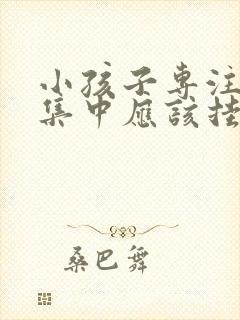 小孩子专注
集中应该挂
桑巴舞